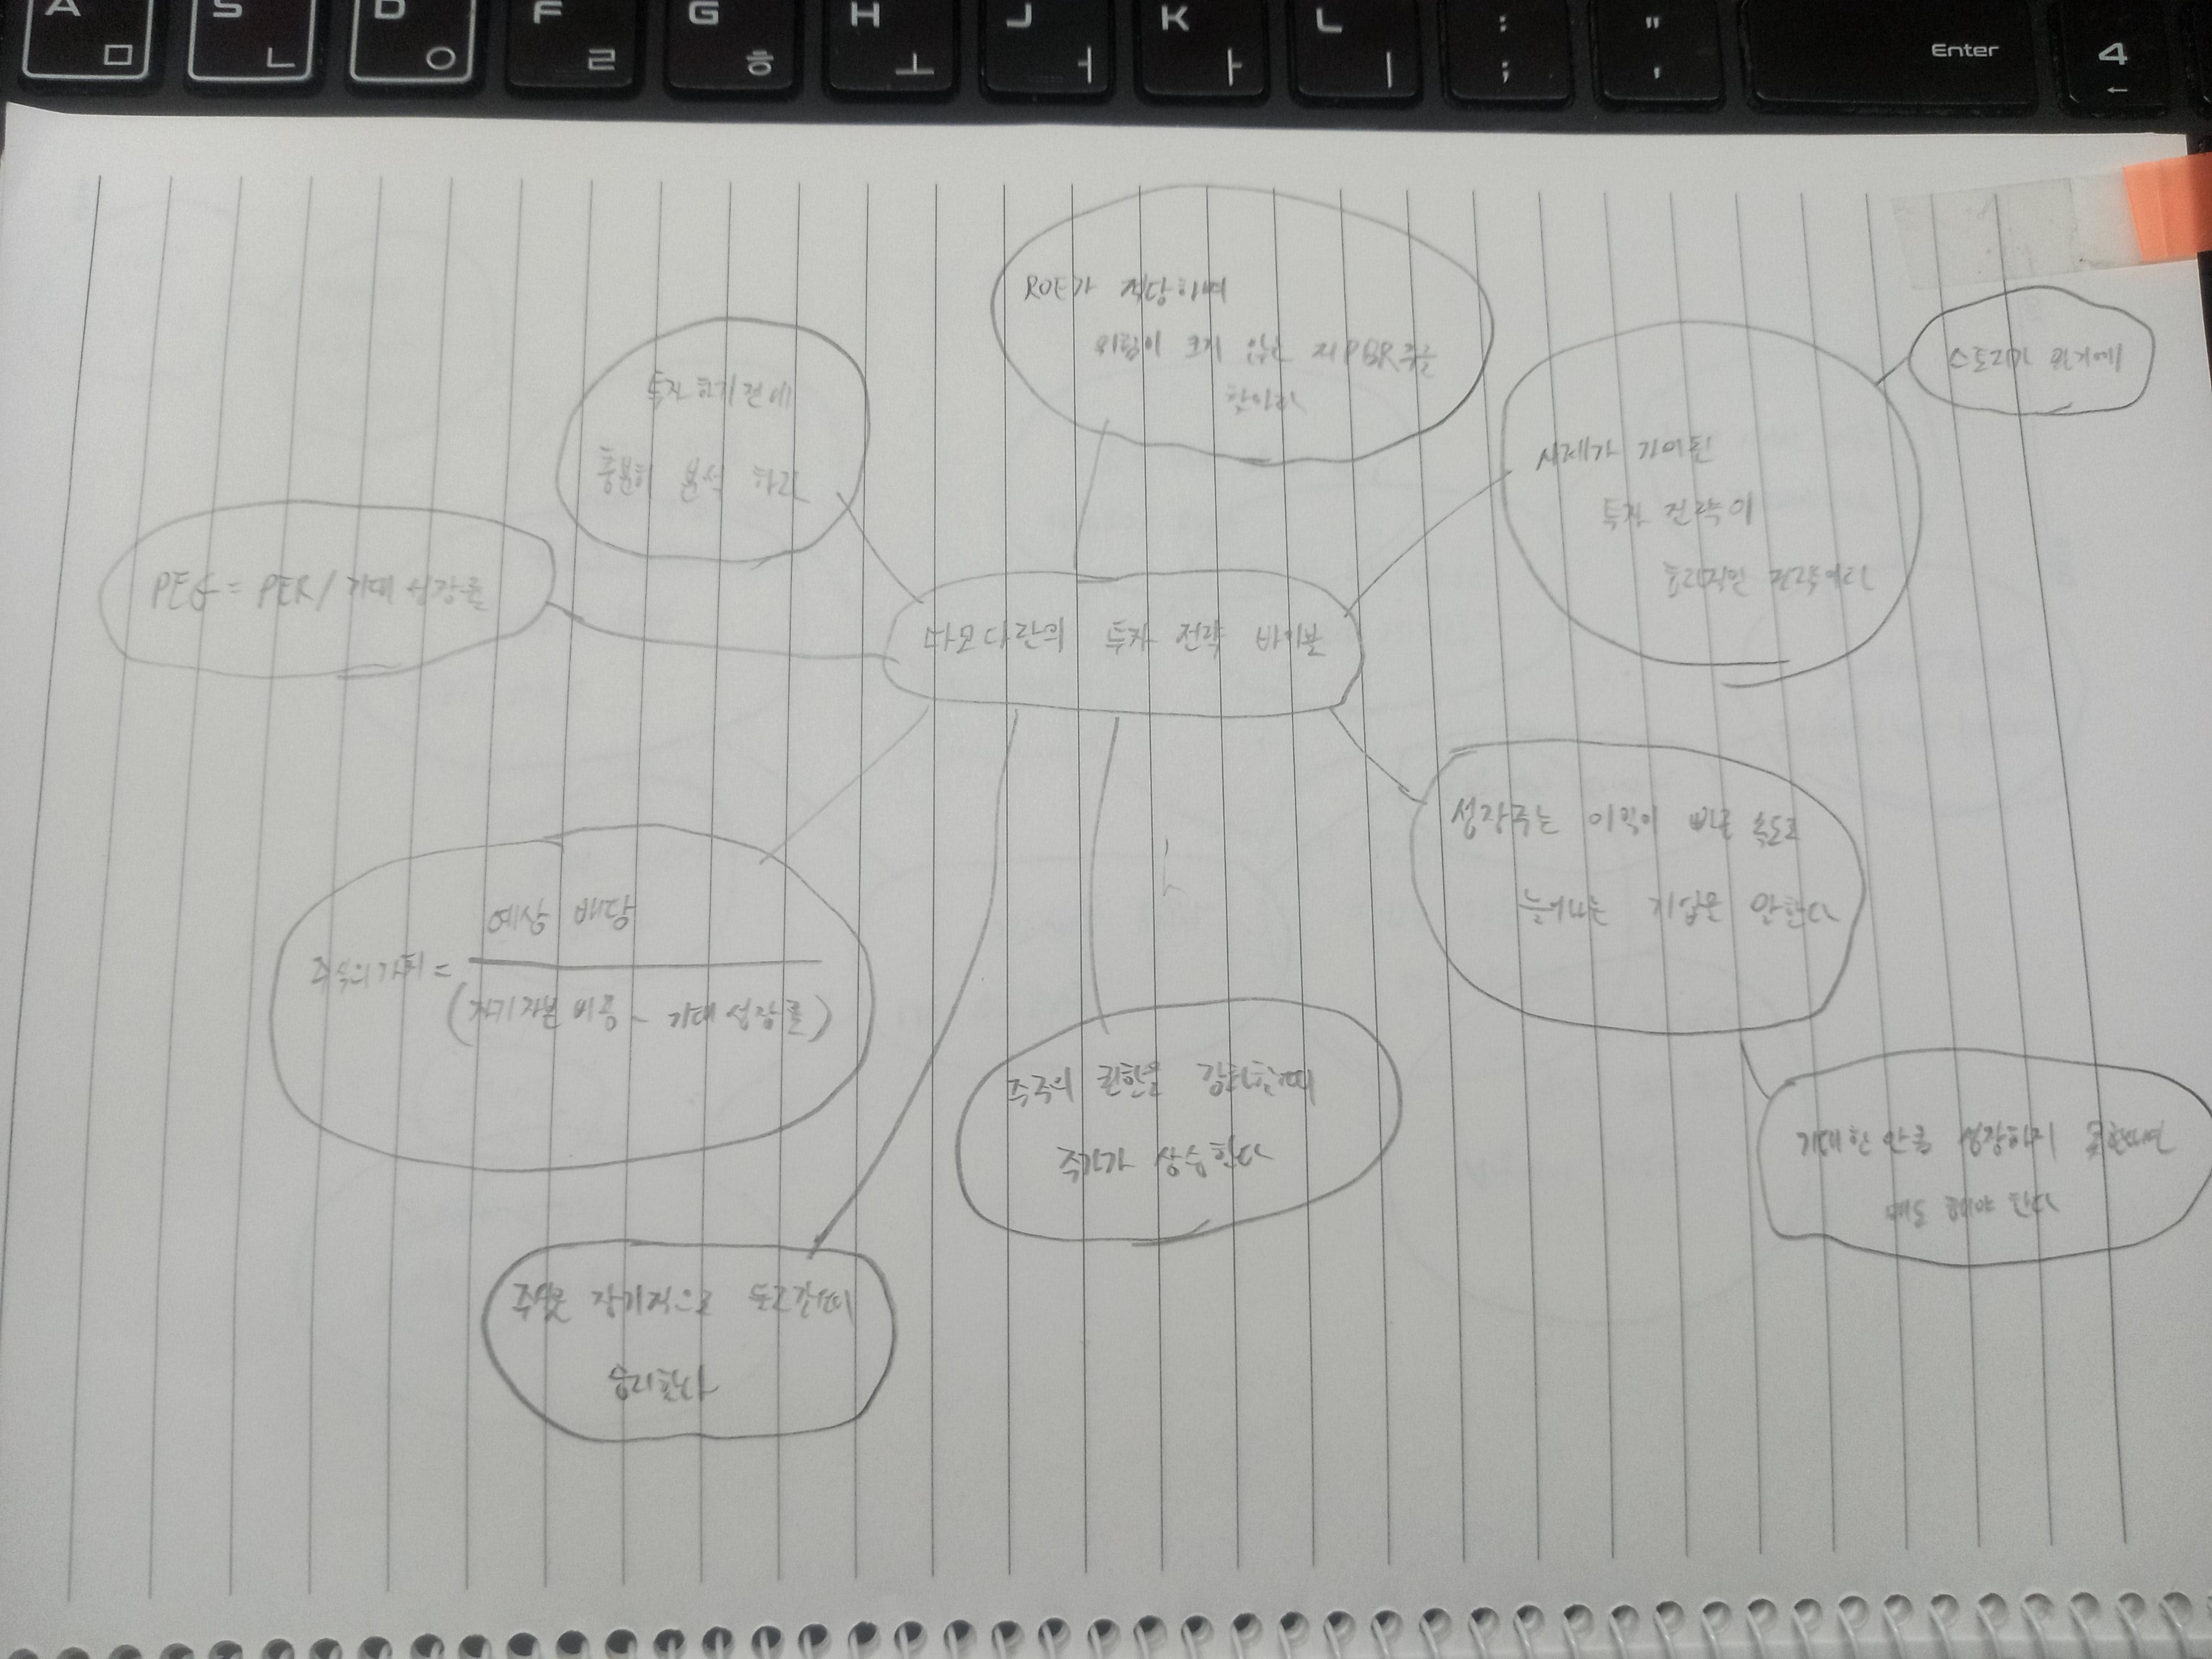 A S D F G H J K L : "
ㅁ ㄴ ㅇ ㄹ ㅎ ㅗ ㅓ ㅏ ㅣ ; ' Enter 4 ←
ROE가 적당하며
위험이 크지 않은 저PBR주를
찾아라
투자 하기 전에
충분히 분석 하라
스토리가 있기에
시계가 가미된
투자 전략이
효과적인 전략이다
PEG = PER / 기대 성장률
다모다란의 투자 전략 바이블
성장주는 이익이 빠른 속도로
늘어나는 기업을 말한다
예상 배당
주식의 가치 =
(자기자본 비용 - 기대 성장률)
주주의 권한을 강화할때
주가가 상승한다
기대한 만큼 성장하지 못한다면
매도 해야 한다
주식은 장기적으로 들고갈때
승리한다